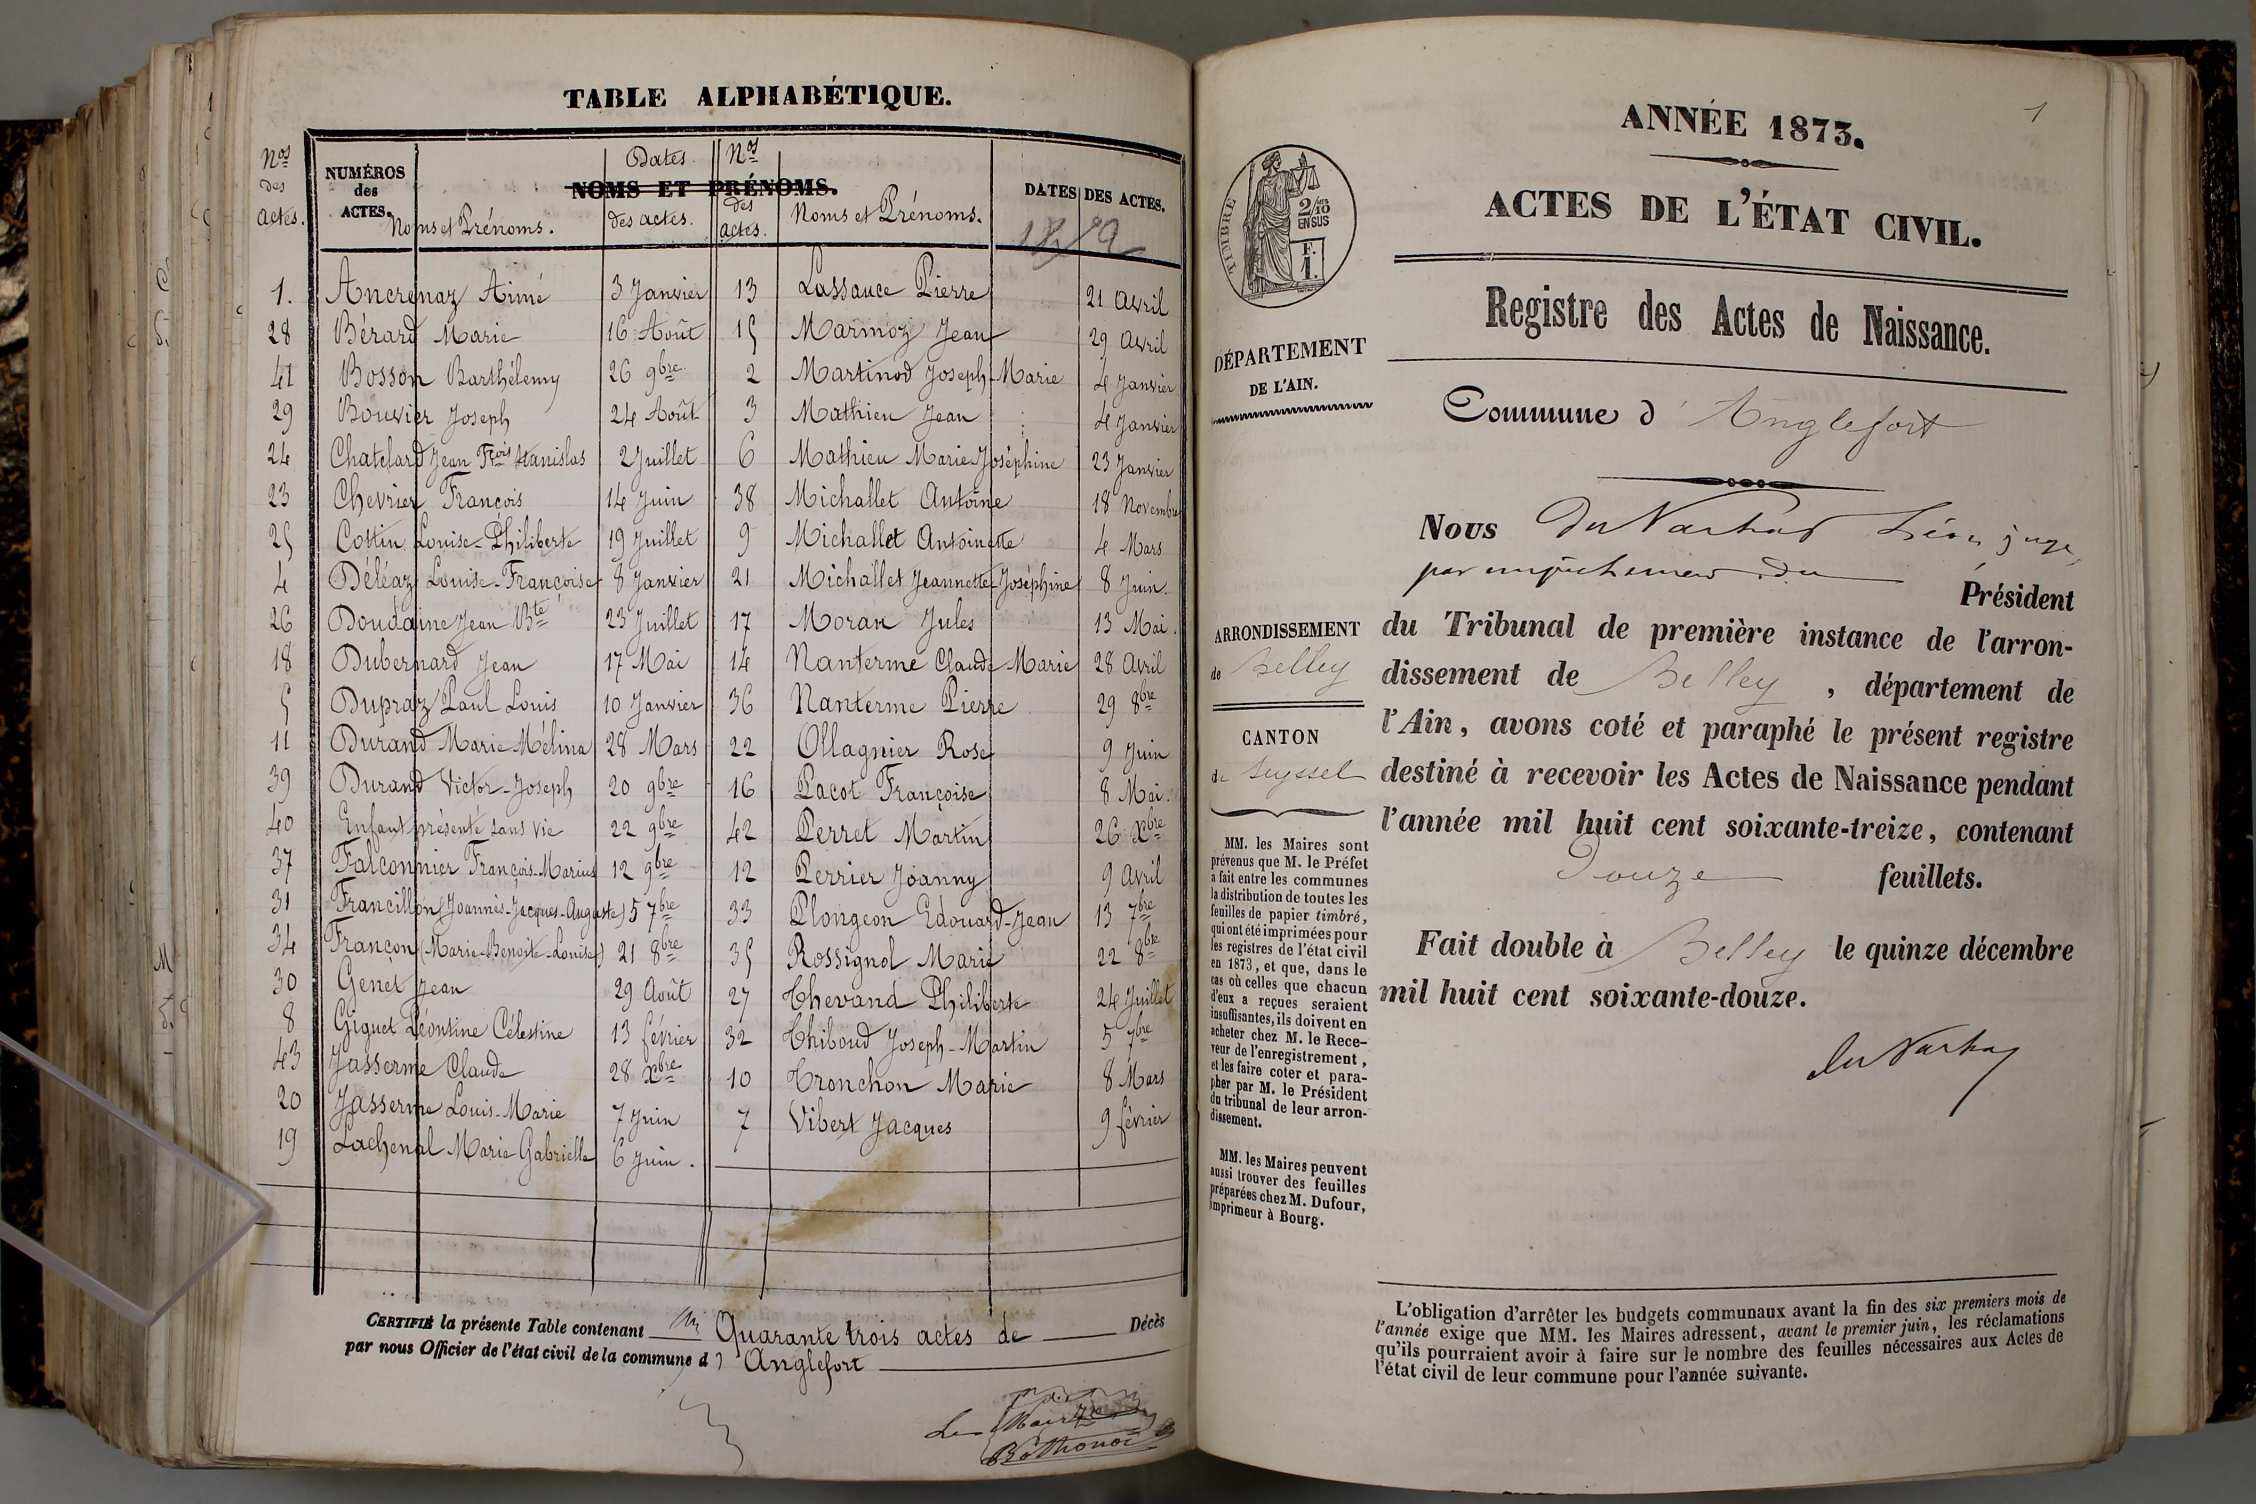 TABLE ALPHABÉTIQUE.
Nos des actes.
NUMÉROS des ACTES.
NOMS ET PRÉNOMS.
Noms et Prénoms.
Dates des actes.
Nos des actes.
Noms et Prénoms.
DATES DES ACTES.
1. Ancrenaz Aimé 3 Janvier 13 Lassauce Pierre 21 Avril
28 Bérard Marie 16 Août 15 Marmoz Jean 29 Avril
41 Bosson Barthélemy 26 9bre 2 Martinod Joseph-Marie 4 Janvier
29 Bouvier Joseph 24 Août 3 Mathieu Jean 4 Janvier
24 Chatelard Jean Fois Stanislas 2 Juillet 6 Mathieu Marie Joséphine 23 Janvier
23 Chevrier François 14 Juin 38 Michallet Antoine 18 Novembre
25 Cottin Louise-Philiberte 19 Juillet 9 Michallet Antoinette 4 Mars
4 Déléaz Louise-Françoise 8 Janvier 21 Michallet Jeannette-Joséphine 8 Juin
26 Doudaine Jean Bte 23 Juillet 17 Moran Jules 13 Mai.
18 Dubernard Jean 17 Mai 14 Nanterme Claude-Marie 28 Avril
5 Dupraz Paul Louis 10 Janvier 36 Nanterme Pierre 29 8bre
11 Durand Marie Mélina 28 Mars 22 Ollagnier Rose 9 Juin
39 Durand Victor-Joseph 20 9bre 16 Pacot Françoise 8 Mai.
40 Enfant présenté sans vie 22 9bre 42 Perret Martin 26 Xbre
37 Falconnier François-Marius 12 9bre 12 Perrier Joanny 9 Avril
31 Francillon (Joannès-Jacques-Auguste) 5 7bre 33 Plongeon Edouard-Jean 13 7bre
34 Françon (Marie-Benoite-Louise) 21 8bre 35 Rossignol Marie 22 8bre
30 Genet Jean 29 Août 27 Thevand Philiberte 24 Juillet
8 Giguet Léontine Célestine 13 février 32 Thiboud Joseph-Martin 5 7bre
43 Jasserme Claude 28 Xbre 10 Tronchon Marie 8 Mars
20 Jasserme Louis-Marie 7 Juin 7 Vibert Jacques 9 février
19 Lachenal Marie Gabrielle 6 Juin.
CERTIFIÉ la présente Table contenant Quarante trois actes de Décès
par nous Officier de l'état civil de la commune d'Anglefort
Le Maire
Bothonod
1
ANNÉE 1873.
ACTES DE L'ÉTAT CIVIL.
TIMBRE
2/10 EN SUS
F. 1.
Registre des Actes de Naissance.
DÉPARTEMENT
DE L'AIN.
Commune d'Anglefort
Nous Léon juge
par empêchement du Président
du Tribunal de première instance de l'arron-
dissement de Belley, département de
l'Ain, avons coté et paraphé le présent registre
destiné à recevoir les Actes de Naissance pendant
l'année mil huit cent soixante-treize, contenant
Douze feuillets.
Fait double à Belley le quinze décembre
mil huit cent soixante-douze.
ARRONDISSEMENT
de Belley
CANTON
de Seyssel
MM. les Maires sont
prévenus que M. le Préfet
a fait entre les communes
la distribution de toutes les
feuilles de papier timbré,
qui ont été imprimées pour
les registres de l'état civil
en 1873, et que, dans le
cas où celles que chacun
d'eux a reçues seraient
insuffisantes, ils doivent en
acheter chez M. le Rece-
veur de l'enregistrement,
et les faire coter et para-
pher par M. le Président
du tribunal de leur arron-
dissement.
MM. les Maires peuvent
aussi trouver des feuilles
préparées chez M. Dufour,
imprimeur à Bourg.
L'obligation d'arrêter les budgets communaux avant la fin des six premiers mois de
l'année exige que MM. les Maires adressent, avant le premier juin, les réclamations
qu'ils pourraient avoir à faire sur le nombre des feuilles nécessaires aux Actes de
l'état civil de leur commune pour l'année suivante.